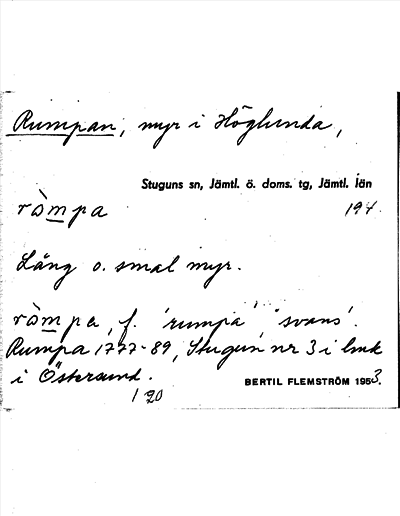 Rumpan, myr i Höglunda,
Stuguns sn, Jämtl. ö. doms. tg, Jämtl. län
ròmpa 194.
Lång o. smal myr.
ròmpa, f. 'rumpa', 'svans'.
Rumpa 1777-89, Stugun nr 3 i lmk
i Östersund.
BERTIL FLEMSTRÖM 1953.
1 20